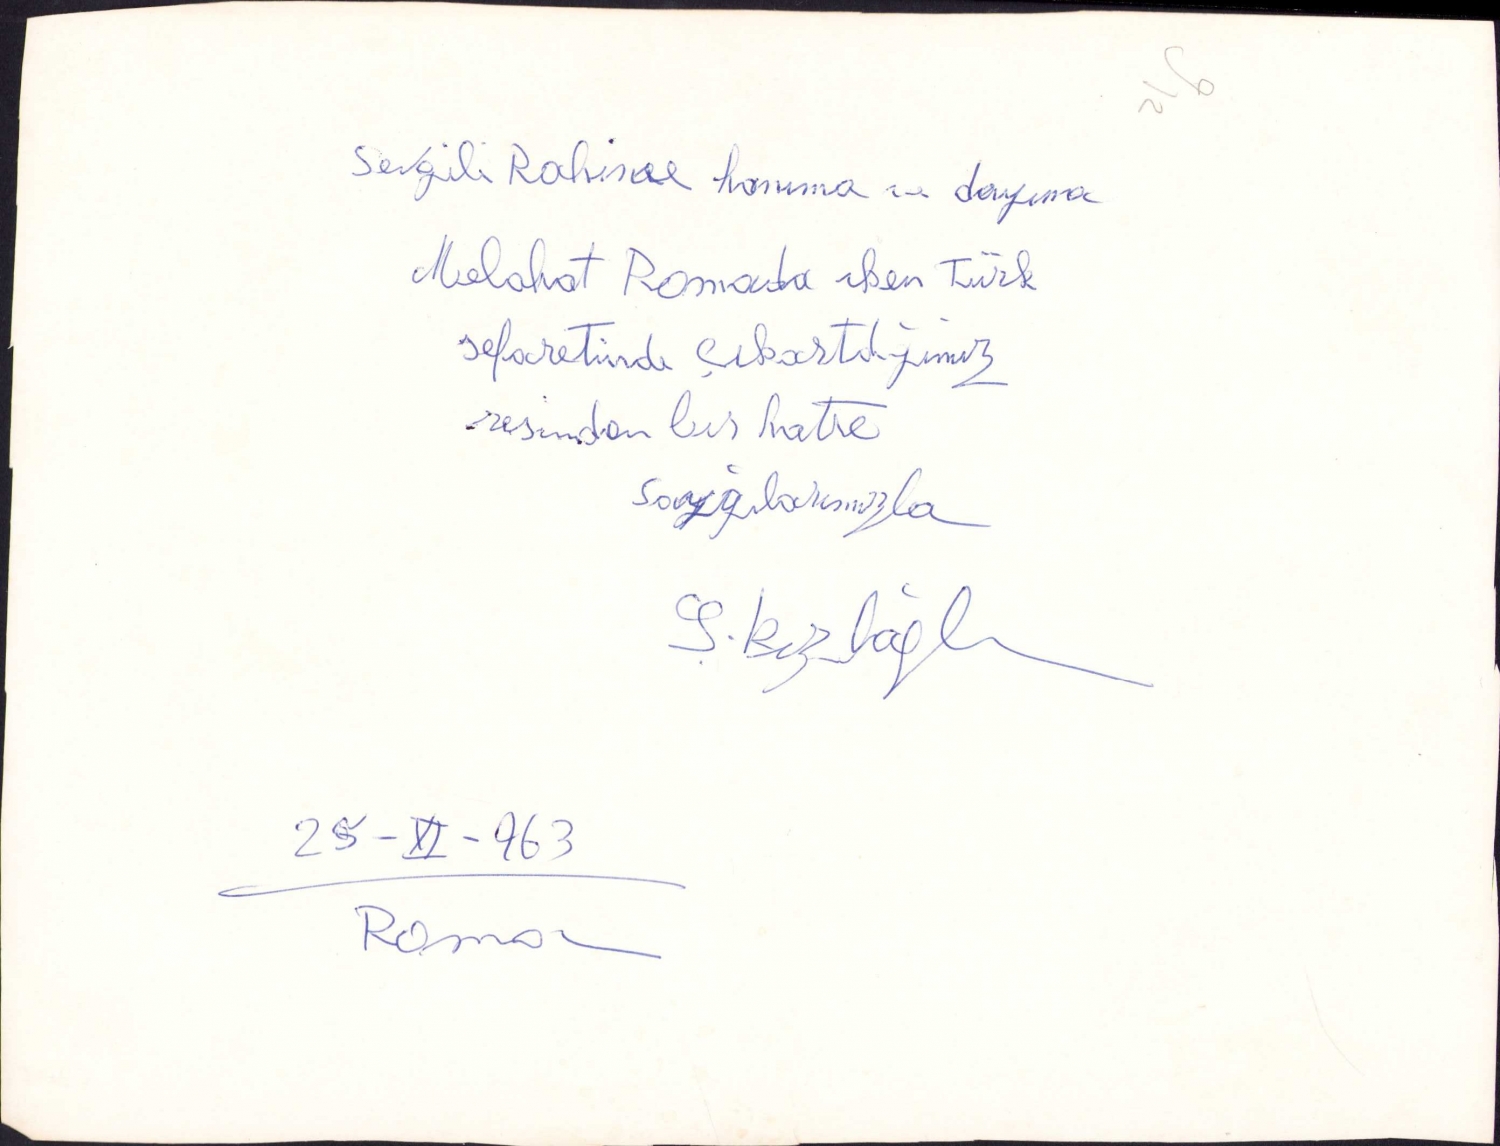 Sevgili Rahime hanıma ve dayıma
Melahat Romada iken Türk
sefaretinde çıkarttığımız
resimden bir hatıre
Saygılarımızla
Ş. Kızıloğlu
25-XI-963
Roma